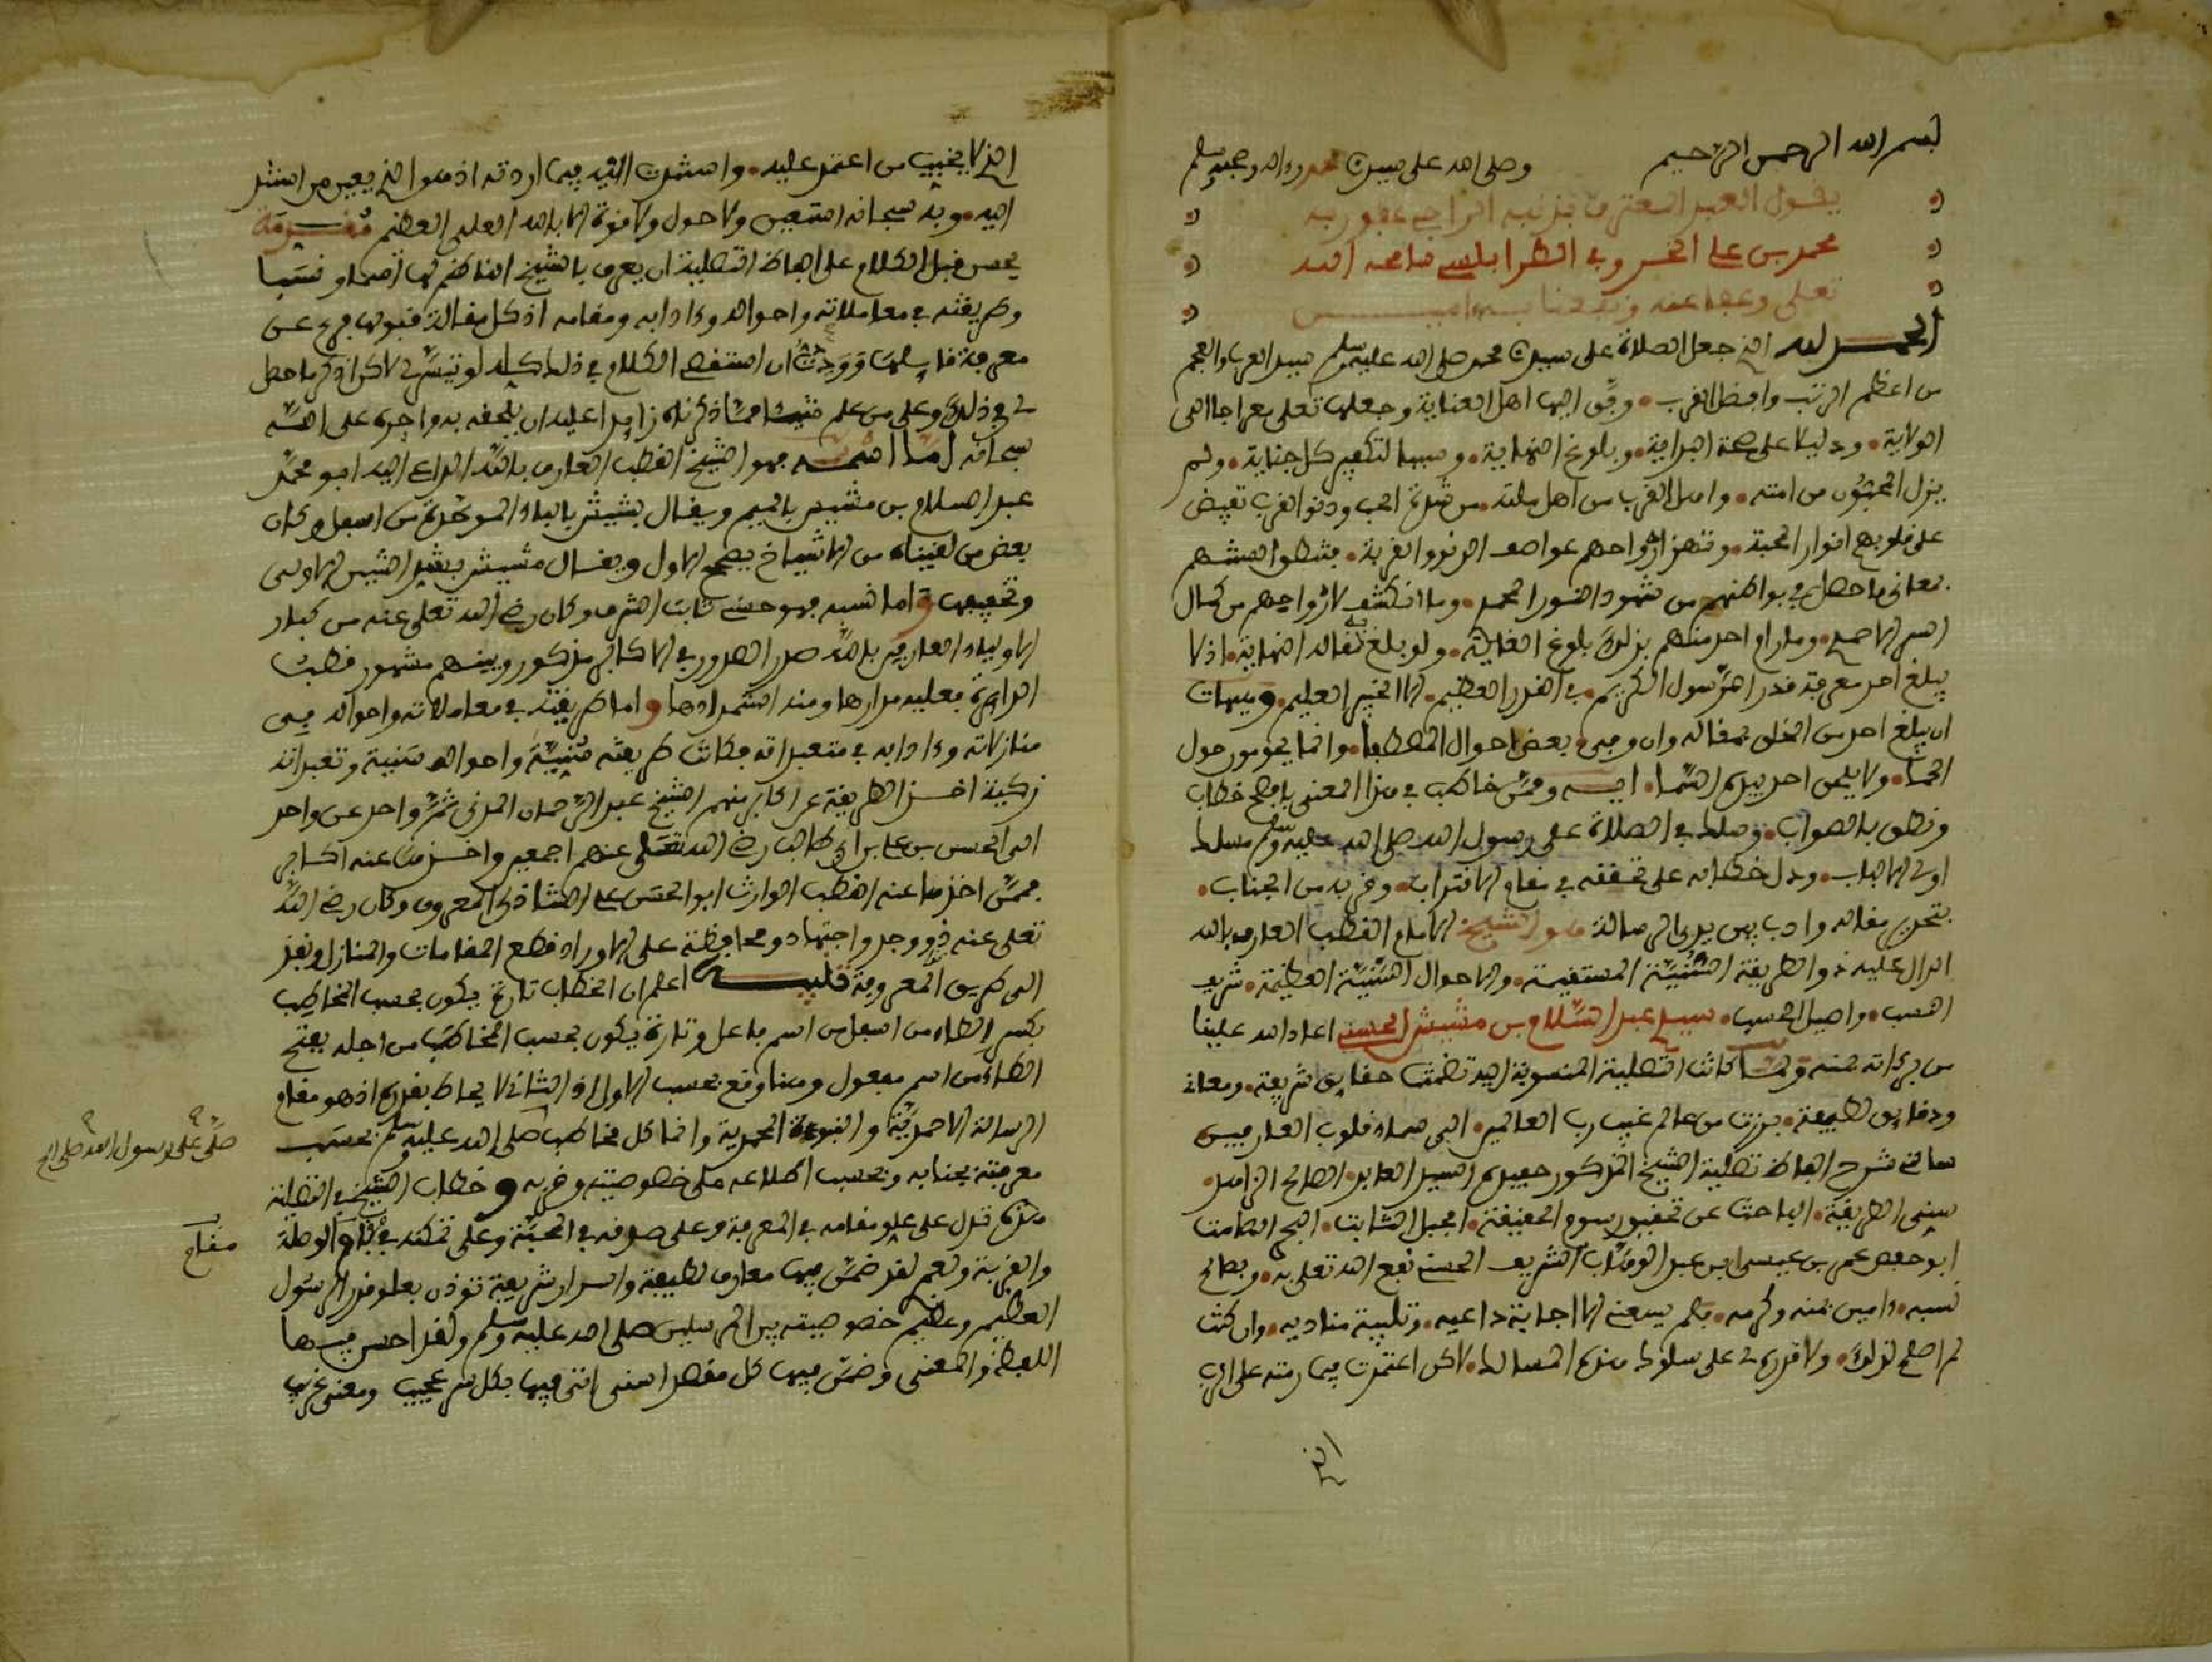 بسم الله الرحمن الرحيم وصلى الله على سيدنا محمد وءاله وصحبه وسلم
يقول العبد المعترف بذنبه الراجي عفو ربه
محمد بن علي الخروبي الطرابلسي سامحه الله
تعلى وعفا عنه
الحمد لله الذي جعل الصلاة على سيدنا محمد صلى الله عليه وسلم سيد العرب والعجم
من اعظم الرتب وافضل القرب ووفق اليها اهل العناية وجعلها تعلى معراجا الى
الولاية ودليلا على صحة البداية وبلوغ النهاية وسببا لتكفير كل جناية ولم
يزل المحبون من امته واهل القرب من اهل ملته من شدة الحب ودنو القرب تفيض
على قلوبهم انوار المحبة وتهز ارواحهم عواصف الدنو والقربة
معاني ما حصل في بواطنهم من شهود النور المحمدي وما انكشف لارواحهم من كمال
السر الاحمدي وما رام احد منهم بذلك بلوغ الغاية ولو بلغ مقاله النهاية اذ لا
يبلغ احد معرفة قدر الرسول الكريم في القدر العظيم الا الخبير العليم وهيهات
ان يبلغ احد من الخلق بمقاله وان وفى بعض احوال المصطفى وانما يحومون حول
الحما ولا يلمس احد بيده السما وممن خاطب في هذا المعنى بافصح خطاب
ونطق بالصواب وسلك في الصلاة على رسول الله صلى الله عليه وسلم مسلك
اولى الالباب ودل خطابه على تحققه في مقام الاقتراب وقربه من الجناب
بتحرير مقاله وادب بين يدي الرسالة هو الشيخ الامام القطب العارف بالله
الدال عليه ذو الطريقة السنية المستقيمة والاحوال السنية العظيمة شريف
النسب واصيل الحسب سيدي عبد السلام بن مشيش الحسني اعاد الله علينا
من بركاته بمنه ولما كانت التصلية المنسوبة اليه تضمنت حقايق شريفة ومعاني
ودقايق لطيفة برزت من عالم غيب رب العالمين الى سماء قلوب العارفين
سالني شرح الفاظ تصلية الشيخ المذكور حفيده السيد العابد الصالح الزاهد
سني الطريقة الباحث عن تحقيق رسوم الحقيقة الجبل الثابت
ابو حفص عمر بن عيسى ابن عبد الوهاب الشريف الحسني نفع الله تعلى به وبصالح
نسبه ءامين بمنه وكرمه فلم يسعني الا اجابة داعيه وتلبية مناديه وان كنت
لم اصلح لذلك ولا قدرة لي على سلوك هذه المسالك لاكن اعتمدت فيما رمته على الرب
الذي
الذي لا يخيب من اعتمد عليه واستندت اليه فيما اردته اذ هو الذي يعين من استند
اليه وبه سبحانه استعين ولا حول ولا قوة الا بالله العلي العظيم مقدمة
يحسن قبل الكلام على الفاظ التصلية ان يعرف بالشيخ الناظم لها اسما ونسبا
وطريقته في معاملاته واحواله وءادابه ومقامه اذ كل مقالة قبولها فرع عن
معرفة قايلها ووددت ان استقصي الكلام في ذلك كله لو تيسر لي لاكن اذكر ما حصل
لي في ذلك وعلى من علم شيئا مما ذكرناه زايدا عليه ان يلحقه به واجره على الله
سبحانه اما اسمه فهو الشيخ القطب العارف بالله الداعي اليه ابو محمد
عبد السلام بن مشيش بالميم ويقال بشيش بالباء الموحدة من اسفل وكان
بعض من لقيناه من الاشياخ يصحح الاول ويقال مشيش بشد الشين الاولى
وتخفيفها واما نسبه فهو حسني ثابت الشرف وكان رضي الله تعلى عنه من كبار
الاولياء العارفين بالله صدر الصدور في الاكابر مذكور وبينهم مشهور قطب
الدايرة فعليه مدارها ومنه استمدادها واما طريقته في معاملاته واحواله في
منازلاته وءادابه في متعبداته فكانت طريقته سنية واحواله سنية وتعبداته
زكية اخذ الطريقة عن اكابر منهم الشيخ عبد الرحمان المدني ثم واحد عن واحد
الى الحسن بن علي بن ابي طالب رضي الله تعلى عنهم اجمعين واخذ عنه اكابر
فممن اخذها عنه القطب الوارث ابو الحسن علي الشاذلي المعروف وكان رضي الله
تعلى عنه ذو وجد واجتهاد ومحافظة على الاوراد قطع المقامات والمنازل ونفذ
الى طريق المعرفة اعلم ان الخطاب تارة يكون بحسب المخاطب
بكسر الطاء من اسفل من اسم فاعل وتارة يكون بحسب المخاطب من اجله بفتح
الطاء من اسم مفعول وهنا وقع بحسب الاول اذ الثاني لا يحاط بقدره اذ هو مقام
الرسالة الاحمدية والنبوءة المحمدية وانما كل مخاطب صلى الله عليه وسلم بحسب
معرفته بجنابه وبحسب اطلاعه على خصوصيته وقربه وخطاب الشيخ في التصلية
هذه تدل على علو مقامه في المعرفة وعلى صدقه في المحبة وعلى تمكنه في مقام الوصلة
والقربة ولعمري لقد ضمن فيها معارف لطيفة واسرار شريفة توذن بعلو قدر الرسول
العظيم وعظيم خصوصيته بين المرسلين صلى الله عليه وسلم ولقد احسن فيها
اللفظ والمعنى وضمن فيها كل مقصد اسنى اتى فيها بكل سر عجيب ومعنى غريب
صلى على رسول الله صلى الله
مقام